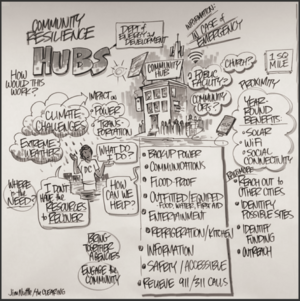 COMMUNITY
RESILIENCE
HUBS
DEPT of
ENERGY &
DEVELOPMENT
INFORMATION
IN CASE of
EMERGENCY
HOW
WOULD THIS
WORK?
COMMUNITY
HUB
PUBLIC
FACILITY?
CHURCH?
COMMUNITY
1 SQ
MILE
CLIMATE
CHALLENGES
EXTREME
WEATHER
IMPACT on
POWER
TRANS-
PORTATION
PROXIMITY
YEAR
ROUND
BENEFITS
• SOLAR
• WiFi
• SOCIAL
CONNECTIVITY
WHAT
DO I
DO?
DC
WHERE
is the
NEED?
I DON'T
HAVE the
RESOURCES
to RECOVER
HOW
CAN WE
HELP?
• BACKUP POWER
• COMMUNICATIONS
• FLOOD-PROOF
• OUTFITTED/EQUIPPED
FOOD, WATER, FIRST AID
• ENTERTAINMENT
• REFRIGERATION/KITCHEN
• INFORMATION
• SAFETY/ACCESSIBLE
• RELIEVE 911/311 CALLS
• REACH OUT to
OTHER CITIES
• IDENTIFY
POSSIBLE SITES
• IDENTIFY
FUNDING
• OUTREACH
BRING
TOGETHER
AGENCIES
ENGAGE the
COMMUNITY